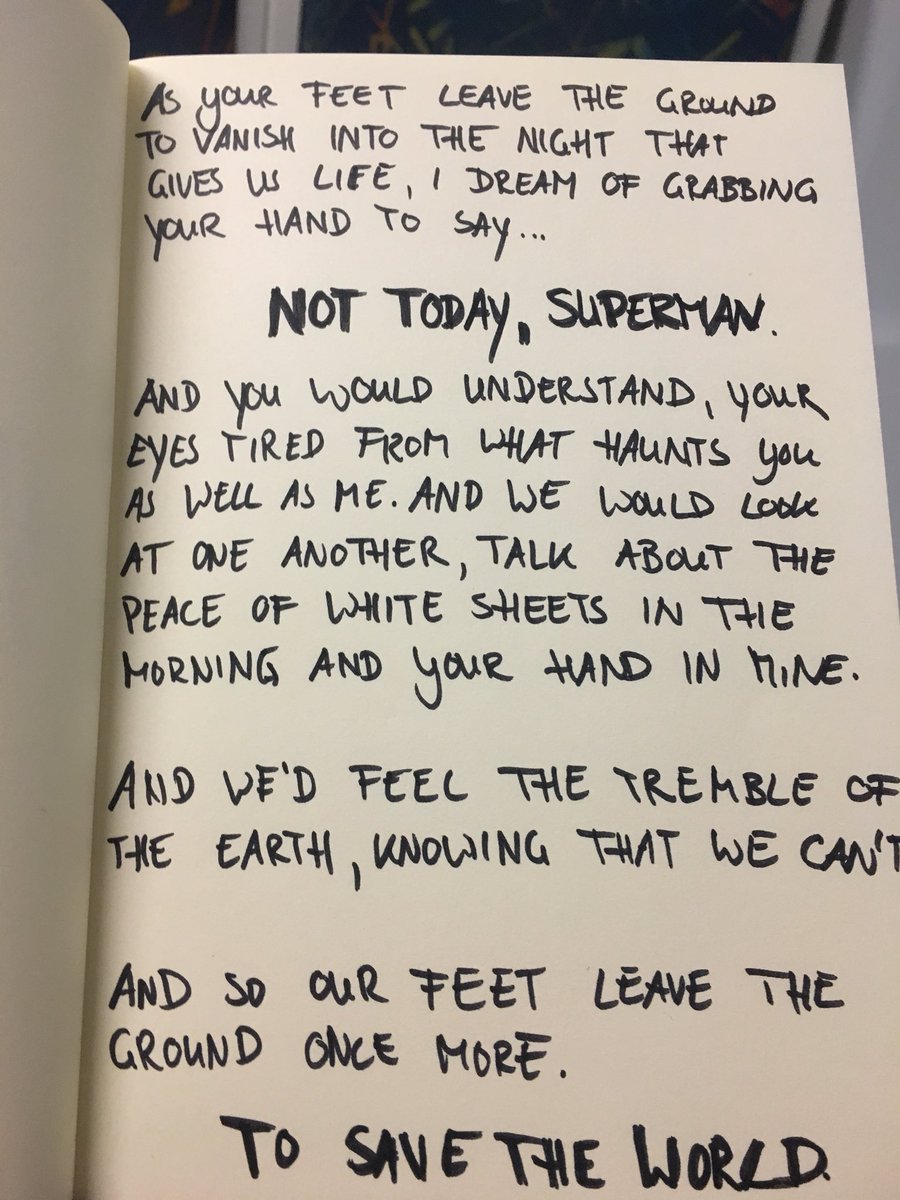 AS YOUR FEET LEAVE THE GROUND
TO VANISH INTO THE NIGHT THAT
GIVES US LIFE, I DREAM OF GRABBING
YOUR HAND TO SAY...
NOT TODAY, SUPERMAN.
AND YOU WOULD UNDERSTAND, YOUR
EYES TIRED FROM WHAT HAUNTS YOU
AS WELL AS ME. AND WE WOULD LOOK
AT ONE ANOTHER, TALK ABOUT THE
PEACE OF WHITE SHEETS IN THE
MORNING AND YOUR HAND IN MINE.
AND WE'D FEEL THE TREMBLE OF
THE EARTH, KNOWING THAT WE CAN'T
AND SO OUR FEET LEAVE THE
GROUND ONCE MORE.
TO SAVE THE WORLD.